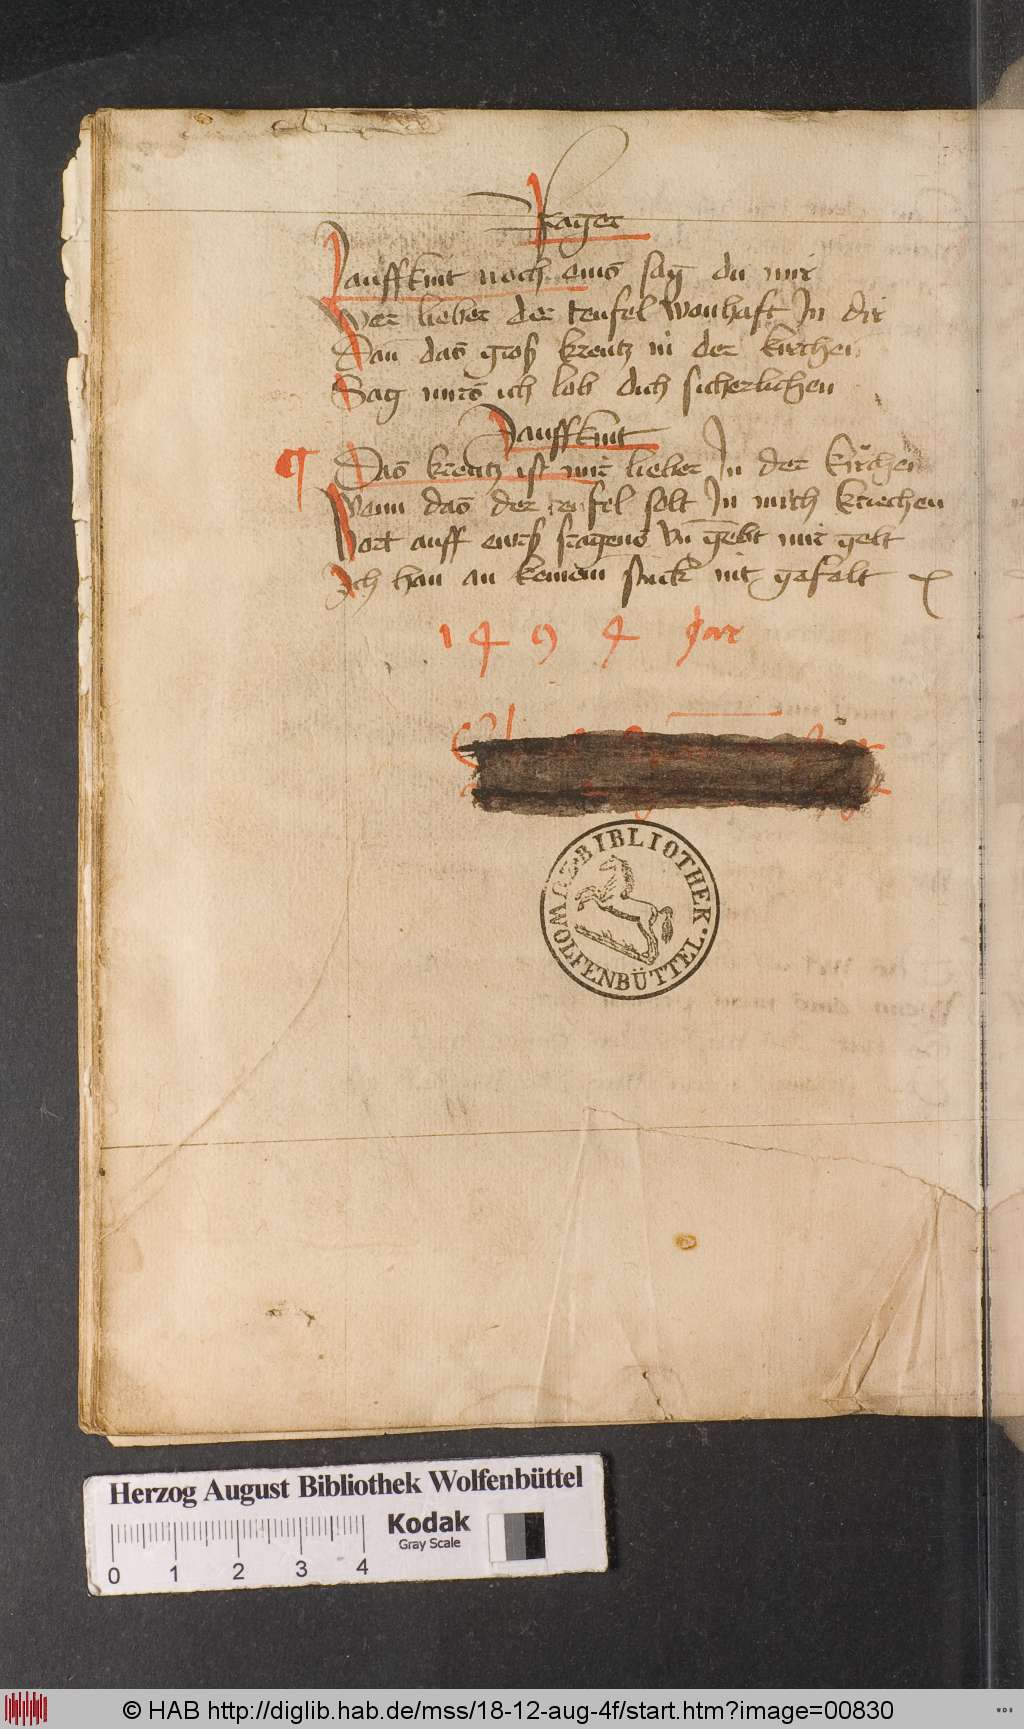 Frager
Pauffkint noch eins sag du mir
Wer lieber der teufel wonhaft Jn dir
Dan̄ das groß kreutz in der kirchen
Sag mirs ich lob dich sicherlichen
Pauffkint
¶ Das kreutz ist mir lieber Jn der kirchen
Wenn das der teufel solt Jn mich kriechen
Hort auff ewrs fragens vn̄ gebt mir gelt
Ich han an keinem stuck nit gefelt
1494 jar
BIBLIOTHEK. WOLFENBÜTTEL.
Herzog August Bibliothek Wolfenbüttel
Kodak
Gray Scale
0 1 2 3 4
© HAB http://diglib.hab.de/mss/18-12-aug-4f/start.htm?image=00830